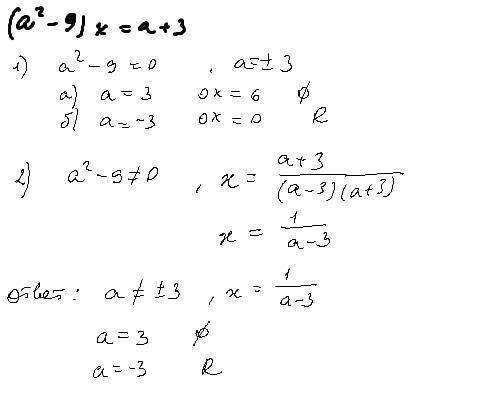 (a² - 9) x = a + 3
1) a² - 9 = 0 , a = ± 3
а) a = 3 0x = 6 ∅
б) a = -3 0x = 0 R
2) a² - 9 ≠ 0 , x = (a + 3) / ((a - 3)(a + 3))
x = 1 / (a - 3)
ответ: a ≠ ± 3 , x = 1 / (a - 3)
a = 3 ∅
a = -3 R